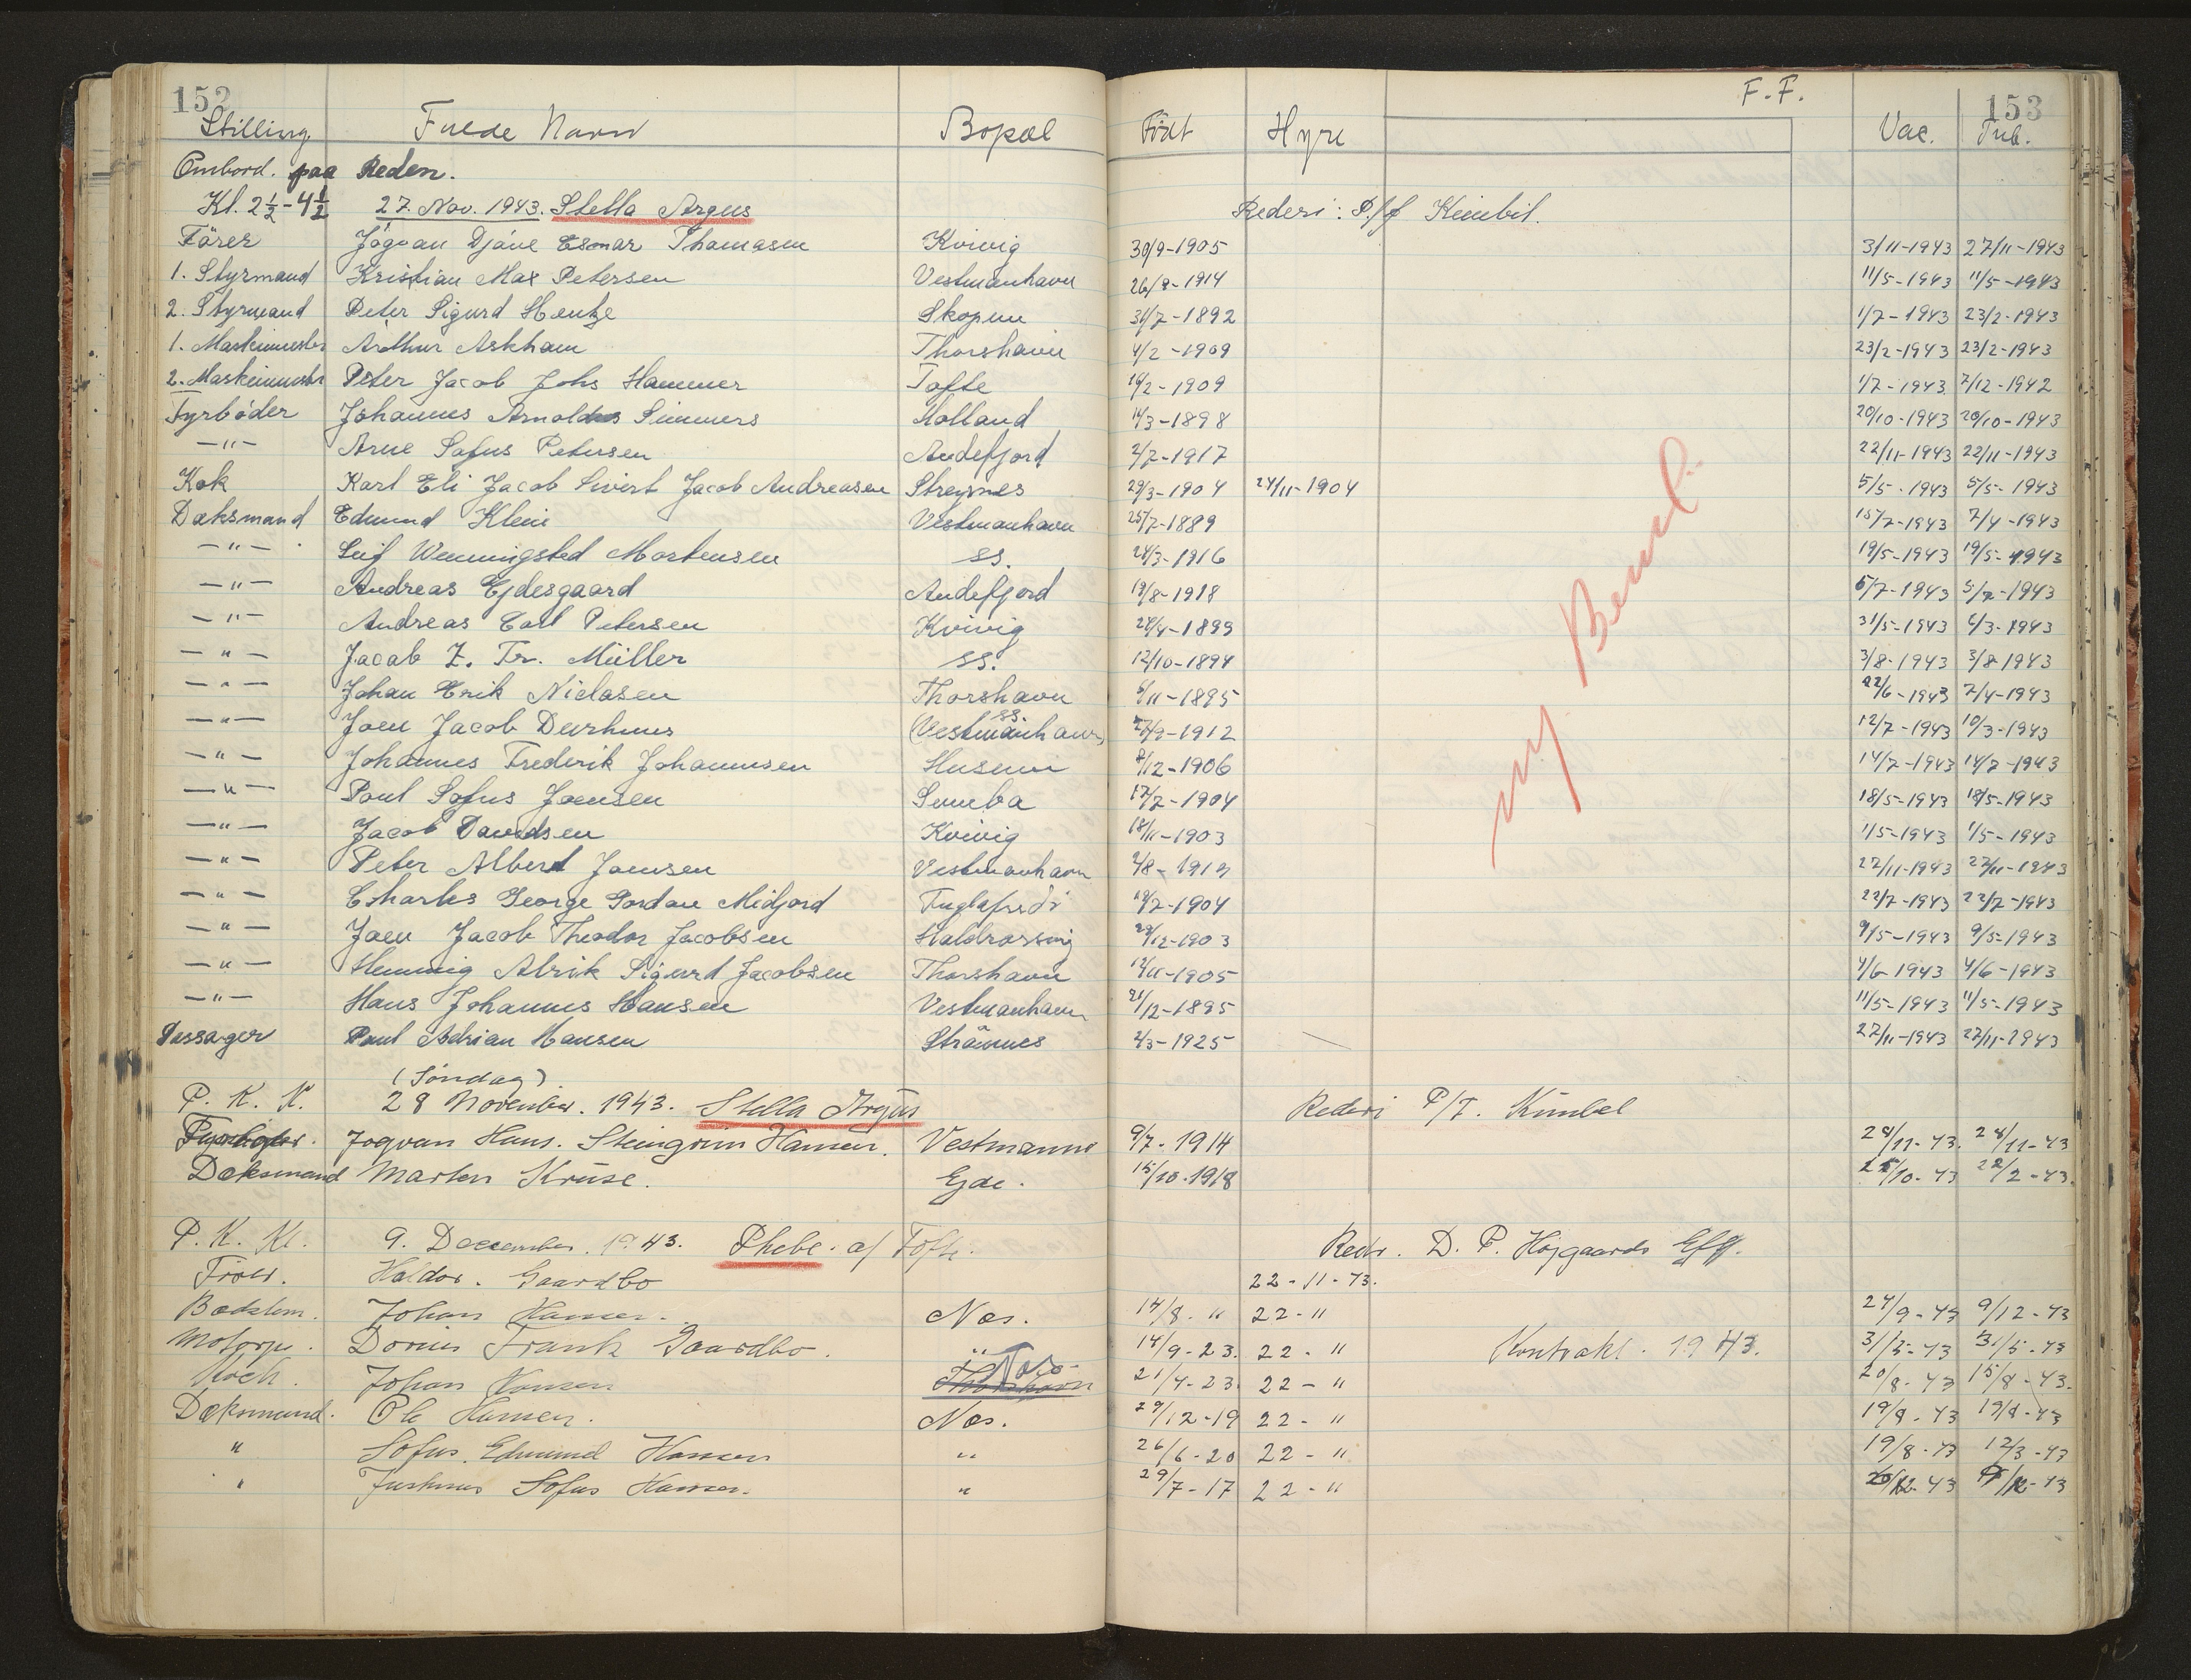 152
F.F.
153
Stilling Fulde Navn Bopæl Født Hyre Vac. Tub.
Ombord. paa Reden.
Kl. 2½-4½ 27. Nov. 1943. Stella Argus Rederi: P/f Kimbil.
Förer Jógvan Djóne Esmar Thomasen Kvivig 30/9-1905 3/11-1943 27/11-1943
1. Styrmand Kristian Max Petersen Vestmanhavn 26/8-1914 11/5-1943 11/5-1943
2. Styrmand Peter Sigurd Hentze Skopun 31/7-1892 1/7-1943 23/2-1943
1. Maskinmester Arthur Askham Thorshavn 4/2-1909 23/2-1943 23/2-1943
2. Maskinmester Peter Jacob Johs Hammer Tofte 19/2-1909 1/7-1943 7/12-1942
Fyrböder Johannus Arnoldus Simmers Holland 14/3-1898 20/10-1943 20/10-1943
-"- Arne Sofus Petersen Andefjord 2/7-1917 22/11-1943 22/11-1943
Kok Karl Eli Jacob Sivert Jacob Andreasen Streymnes 29/3-1904 24/11-1904 5/5-1943 5/5-1943
Dæksmand Edmund Klein Vestmanhavn 25/7-1889 15/7-1943 7/4-1943
-"- Leif Wenningsted Mortensen ss. 24/3-1916 19/5-1943 19/5-1943
-"- Andreas Ejdesgaard Andefjord 19/8-1918 5/7-1943 5/7-1943
-"- Andreas Carl Petersen Kvivig 28/4-1899 31/5-1943 6/3-1943
-"- Jacob Z. Fr. Müller ss. 12/10-1894 3/8-1943 3/8-1943
-"- Johan Erik Niclasen Thorshavn 5/11-1895 22/6-1943 7/4-1943
-"- Joen Jacob Durhuus ss. (Vestmanhavn) 27/9-1912 12/7-1943 10/3-1943
-"- Johannes Frederik Johannesen Husum 8/12-1906 14/7-1943 14/7-1943
-"- Poul Sofus Joensen Sumba 17/7-1904 18/5-1943 18/5-1943
-"- Jacob Davidsen Kvivig 18/11-1903 1/5-1943 1/5-1943
-"- Peter Albert Joensen Vestmanhavn 2/8-1917 27/11-1943 27/11-1943
-"- Charles George Gordon Midjord Fuglafirdi 19/7-1904 22/7-1943 22/7-1943
-"- Joen Jacob Theodor Jacobsen Haldrarsvig 29/12-1903 9/5-1943 9/5-1943
-"- Hemmig Alrik Sigurd Jacobsen Thorshavn 12/11-1905 4/6-1943 4/6-1943
-"- Hans Johannus Hansen Vestmanhavn 21/12-1895 11/5-1943 11/5-1943
Passager Poul Adrian Hansen Strännes 2/3-1925 27/11-1943 27/11-1943
(Söndag)
P. K. K. 28 November. 1943. Stella Argus Rederi P/F. Kimbel
Fyrböder. Jogvan Hans. Steingrim Hansen. Vestmanna 9/7-1914 28/11-43. 28/11-43
Dæksmand Marten Kruse. Ejde. 15/10-1918 25/10-43 22/2-43.
P. K. Kl. 9. December. 1943. Phebe. af Tofte. Redr. D. P. Højgaards Eff.
Förer. Haldor. Gaardbo 22-11-43.
Bedstem. Johan Hansen. Nes. 14/8. " 22-" 24/9-43 9/12-43
Motorp. Dorius Frank Gaardbo. " 14/9-23. 22-" Kontrakt. 1943. 31/5-43 31/5-43
Koch. Johan Hansen Thorshavn Nes 21/4-23. 22-" 20/8-43 15/8-43.
Dæksmand. Ole Hansen. Nes. 29/12-19 22-" 19/8-43 19/8-43
" Sofus. Edmund Hansen " 26/6-20 22-" 19/8-43 12/3-43
" Justinus Sofus Hansen. " 29/7-17 22-"